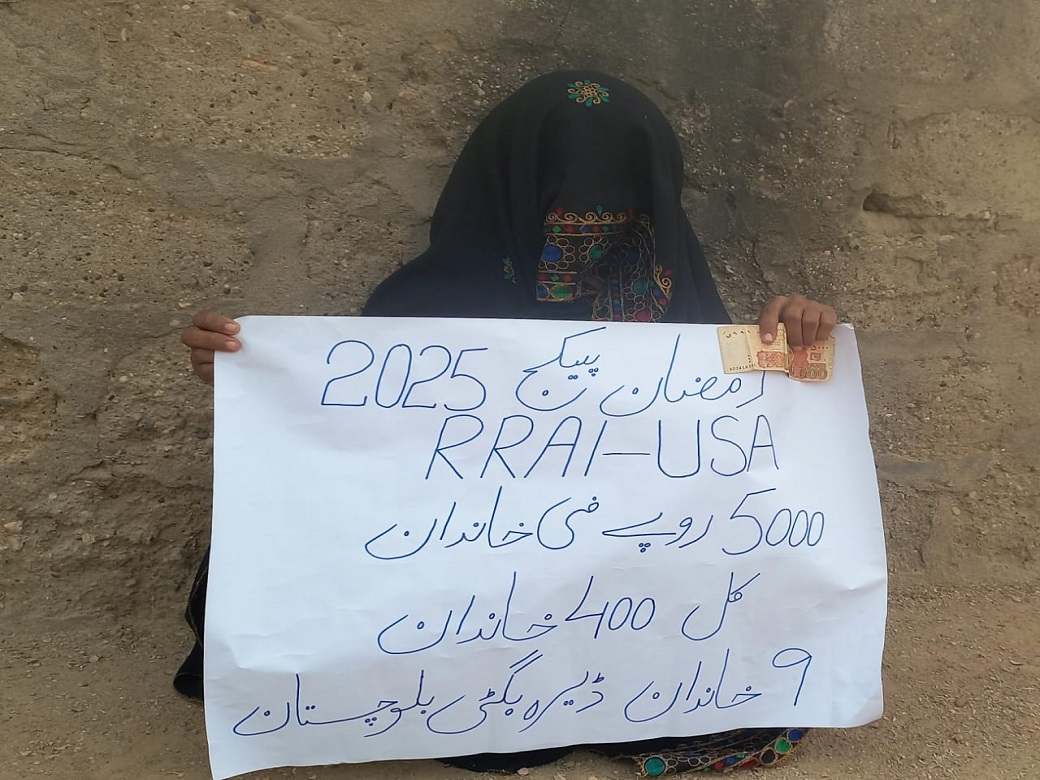 رمضان پیکج 2025
RRAI-USA
5000 روپے فی خاندان
کل 400 خاندان
9 خاندان ڈیرہ بگٹی بلوچستان